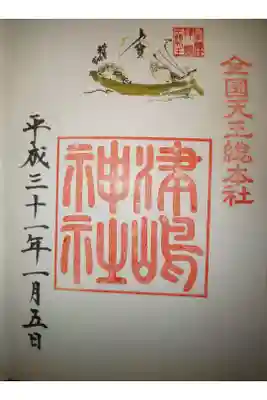 全国天王総本社
津嶋
神社
平成三十一年一月五日